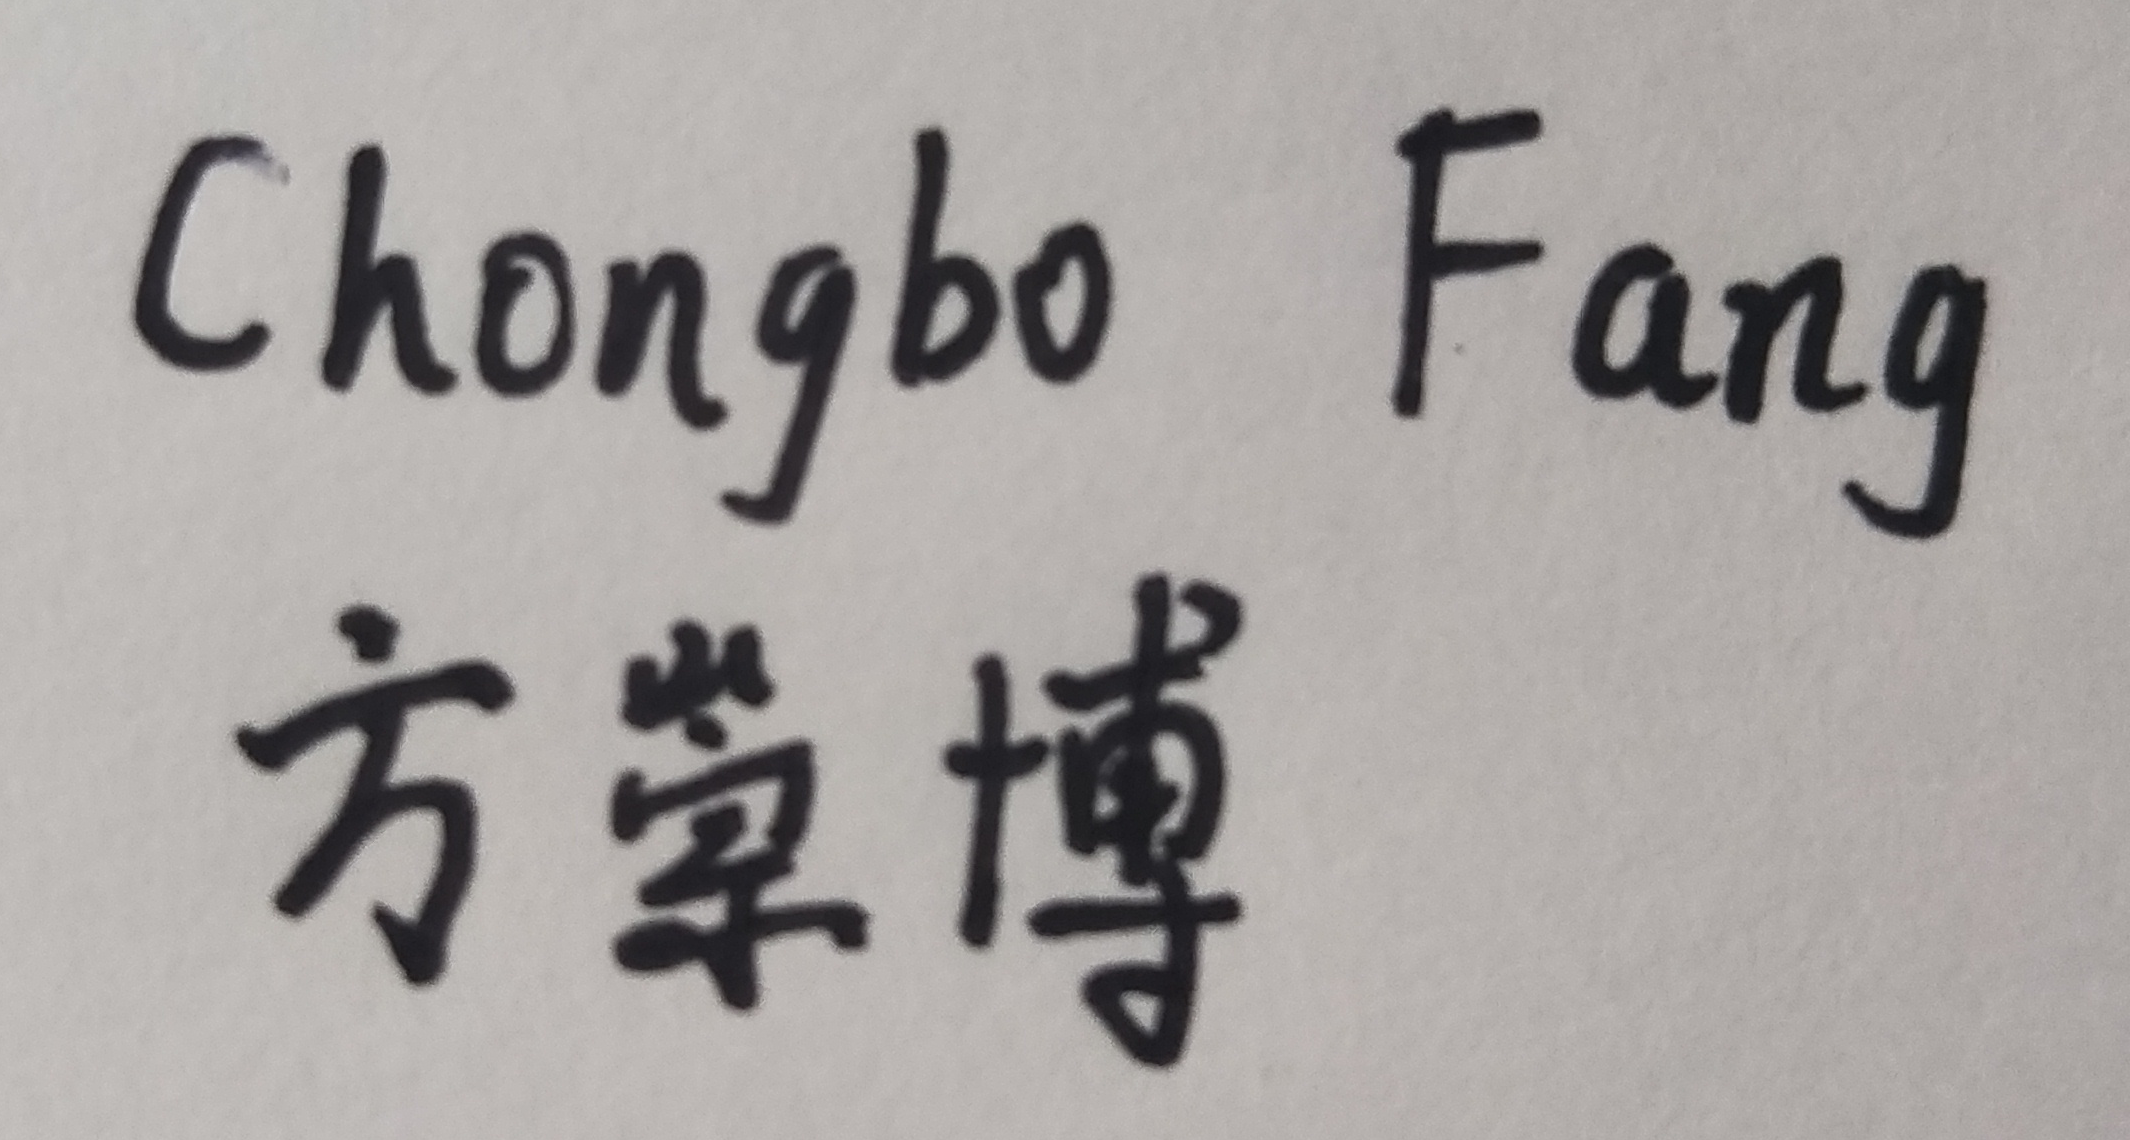 Chongbo Fang
方崇博